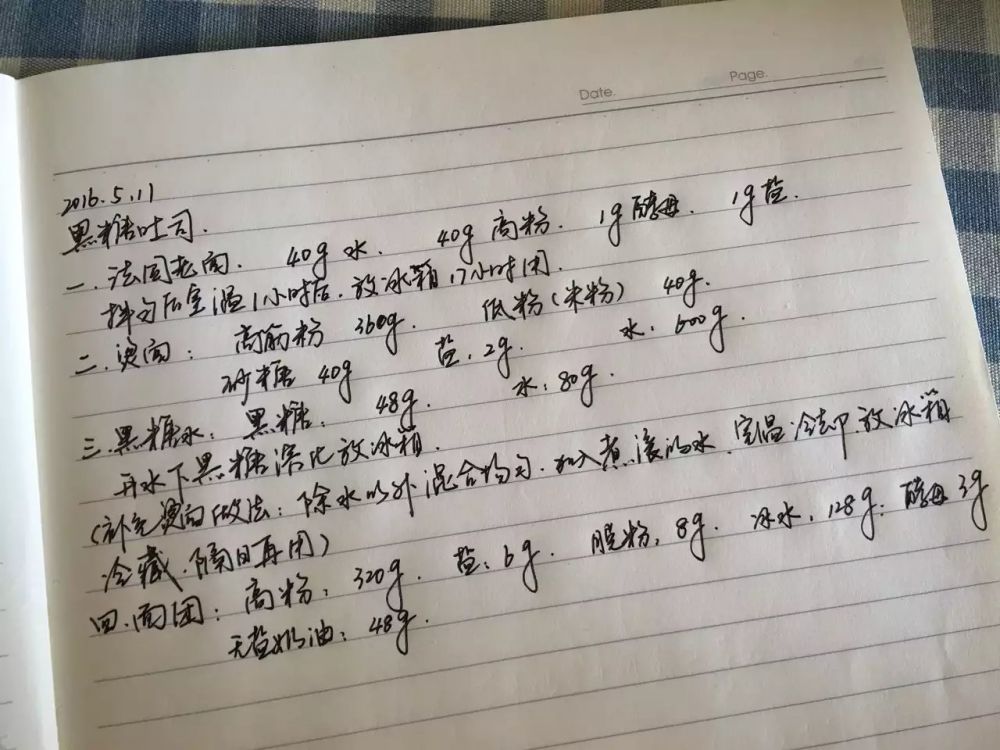 Date.
Page.
2016.5.11
黑糖吐司.
一.法国老面. 40g 水. 40g 高粉. 1g 酵母. 1g 盐.
拌匀后室温1小时后.放冰箱17小时用.
二.烫面: 高筋粉 360g. 低粉(米粉) 40g.
砂糖 40g 盐.2g. 水.600g.
三.黑糖水: 黑糖: 48g. 水:80g.
开水下黑糖溶化放冰箱.
(补充烫面做法:除水以外混合均匀.加入煮滚的水.室温冷却.放冰箱
冷藏.隔日再用)
四.面团: 高粉:320g. 盐:6g. 脱粉.8g. 冰水.128g: 酵母3g
无盐奶油:48g.